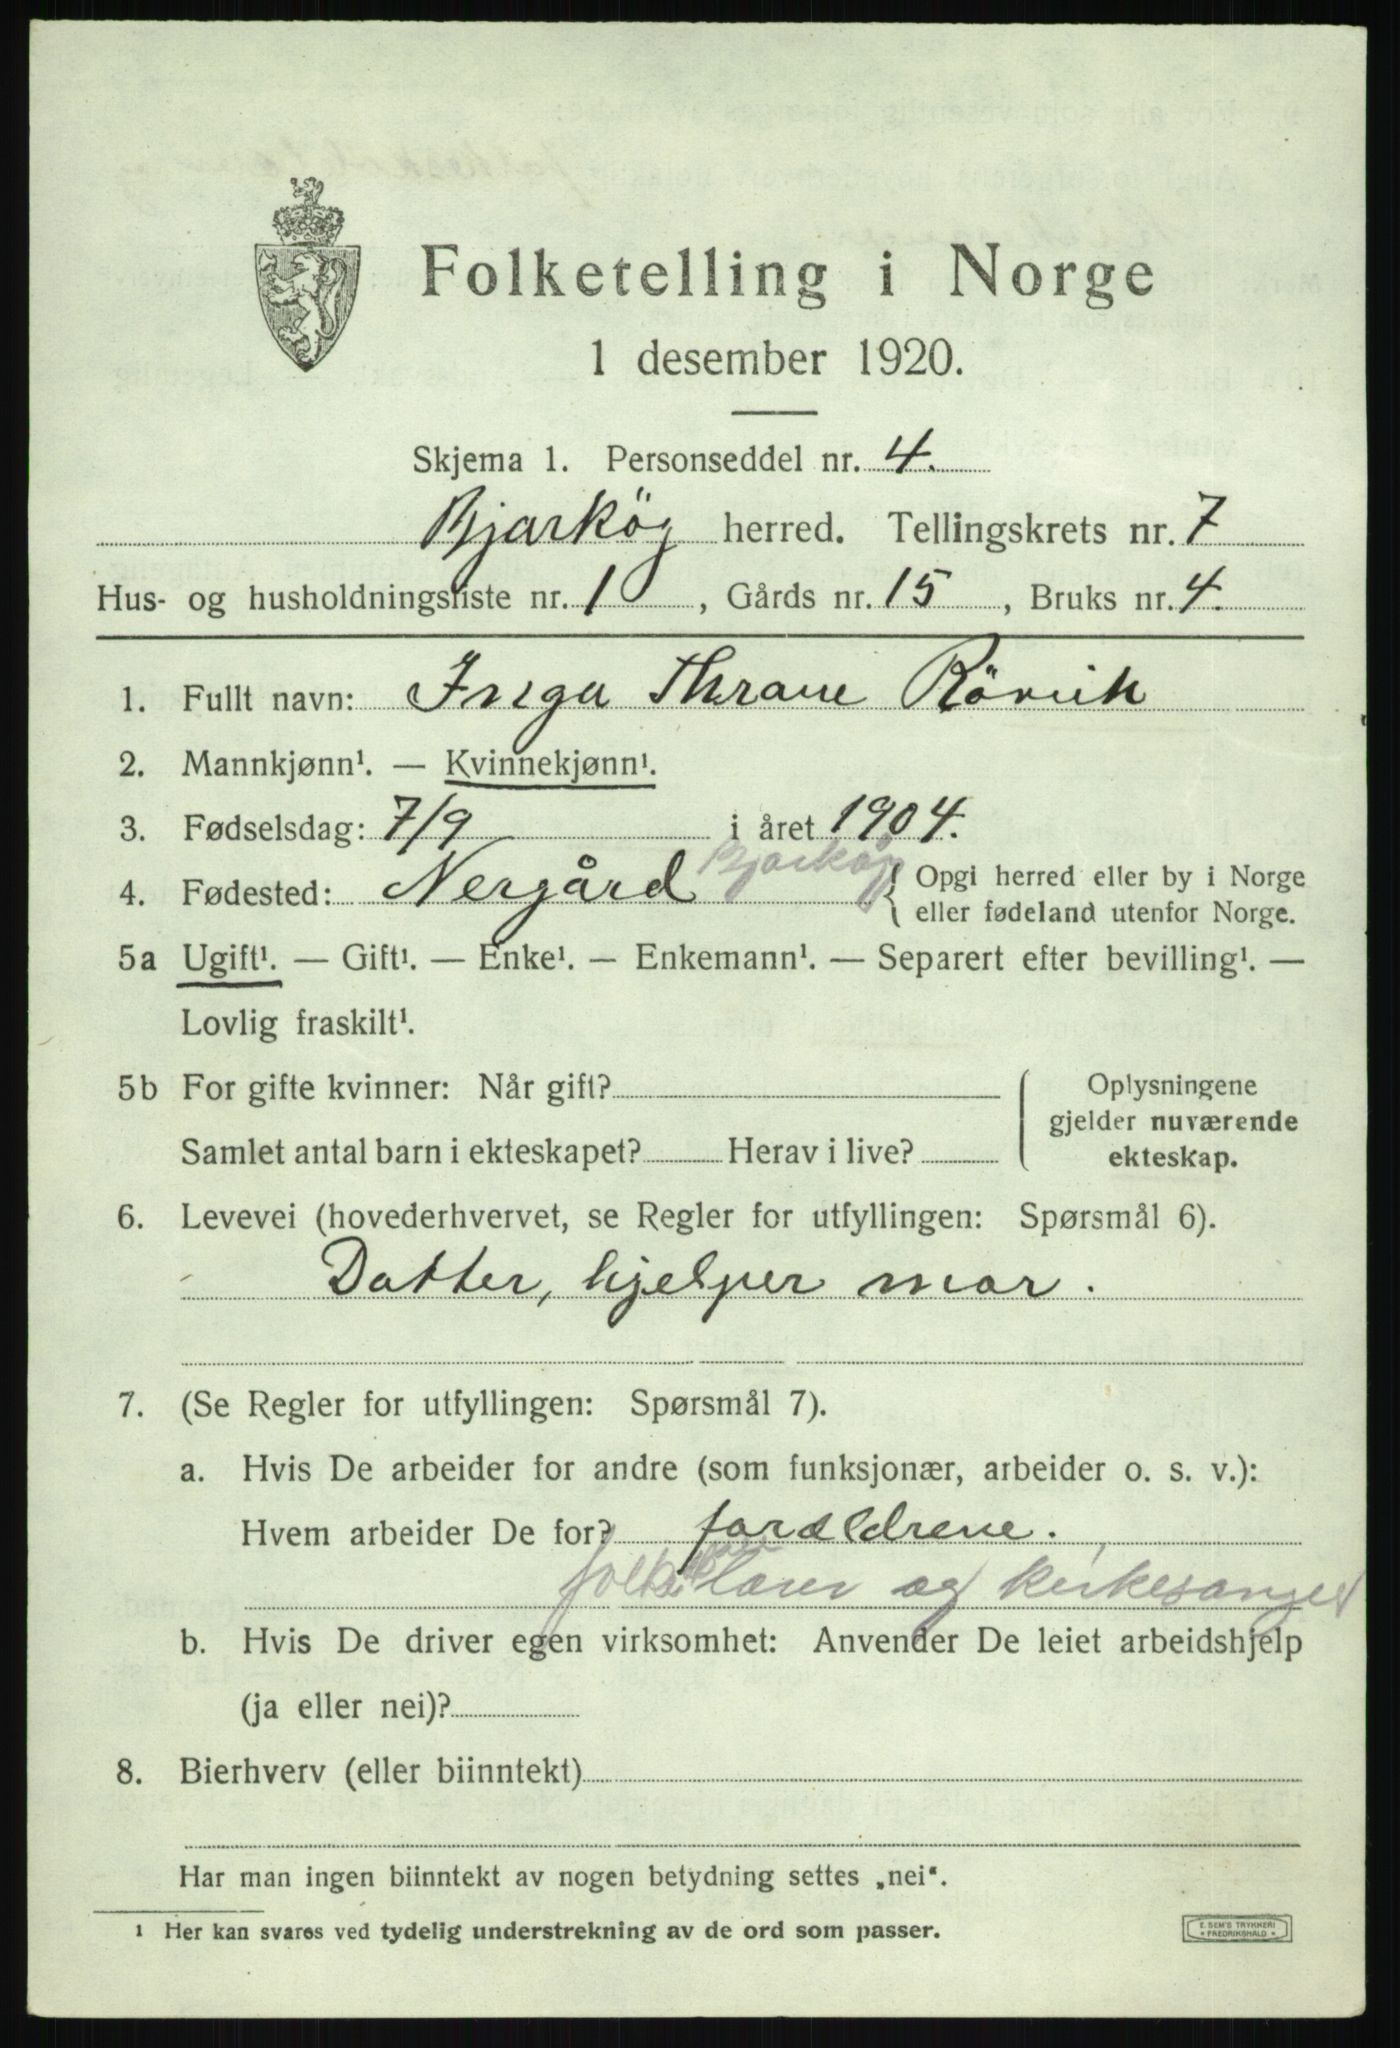 Folketelling i Norge
1 desember 1920.
Skjema 1. Personseddel nr. 4.
Bjarköy herred. Tellingskrets nr. 7
Hus- og husholdningsliste nr. 1, Gårds nr. 15, Bruks nr. 4.
1. Fullt navn: Inga Thrane Rörvik
2. Mannkjønn¹. — Kvinnekjønn¹.
3. Fødselsdag: 7/9 i året 1904.
4. Fødested: Nergård Bjarköy { Opgi herred eller by i Norge
eller fødeland utenfor Norge.
5a Ugift¹. — Gift¹. — Enke¹. — Enkemann¹. — Separert efter bevilling¹. —
Lovlig fraskilt¹.
5b For gifte kvinner: Når gift?
Samlet antal barn i ekteskapet? Herav i live?
Oplysningene
gjelder nuværende
ekteskap.
6. Levevei (hovederhvervet, se Regler for utfyllingen: Spørsmål 6).
Datter, hjelper mor.
7. (Se Regler for utfyllingen: Spørsmål 7).
a. Hvis De arbeider for andre (som funksjonær, arbeider o. s. v.):
Hvem arbeider De for? forældrene.
lærer og kirkesanger
b. Hvis De driver egen virksomhet: Anvender De leiet arbeidshjelp
(ja eller nei)?
8. Bierhverv (eller biinntekt)
Har man ingen biinntekt av nogen betydning settes „nei“.
¹ Her kan svares ved tydelig understrekning av de ord som passer.
E. SEM'S TRYKKERI
* FREDRIKSHALD *